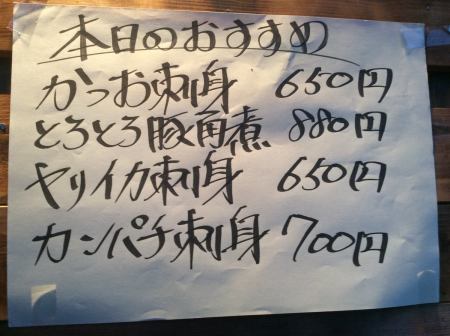 本日のおすすめ
かつお刺身 650円
とろとろ豚角煮 880円
ヤリイカ刺身 650円
カンパチ刺身 700円